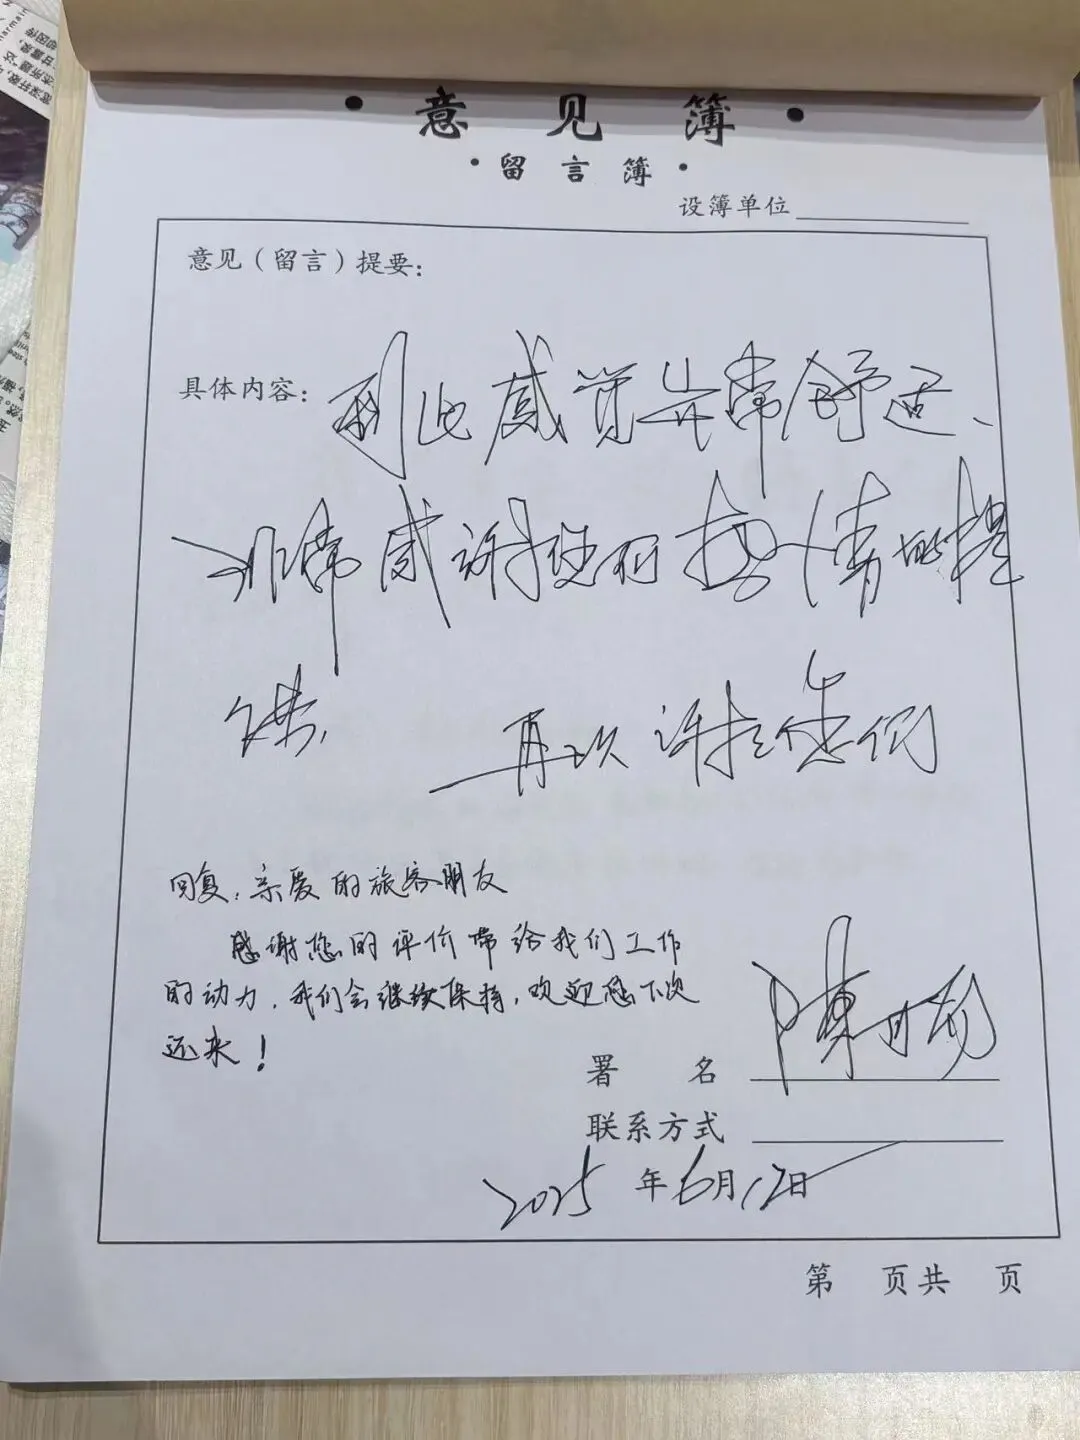 ·意见簿·
·留言簿·
设簿单位
意见（留言）提要：
具体内容：到此感觉非常舒适、
非常感谢您们热情的提
供，再次谢谢您们
回复：亲爱的旅客朋友
感谢您的评价带给我们工作
的动力，我们会继续保持，欢迎您下次
还来！
署名 陳
联系方式
2025年6月12日
第 页共 页